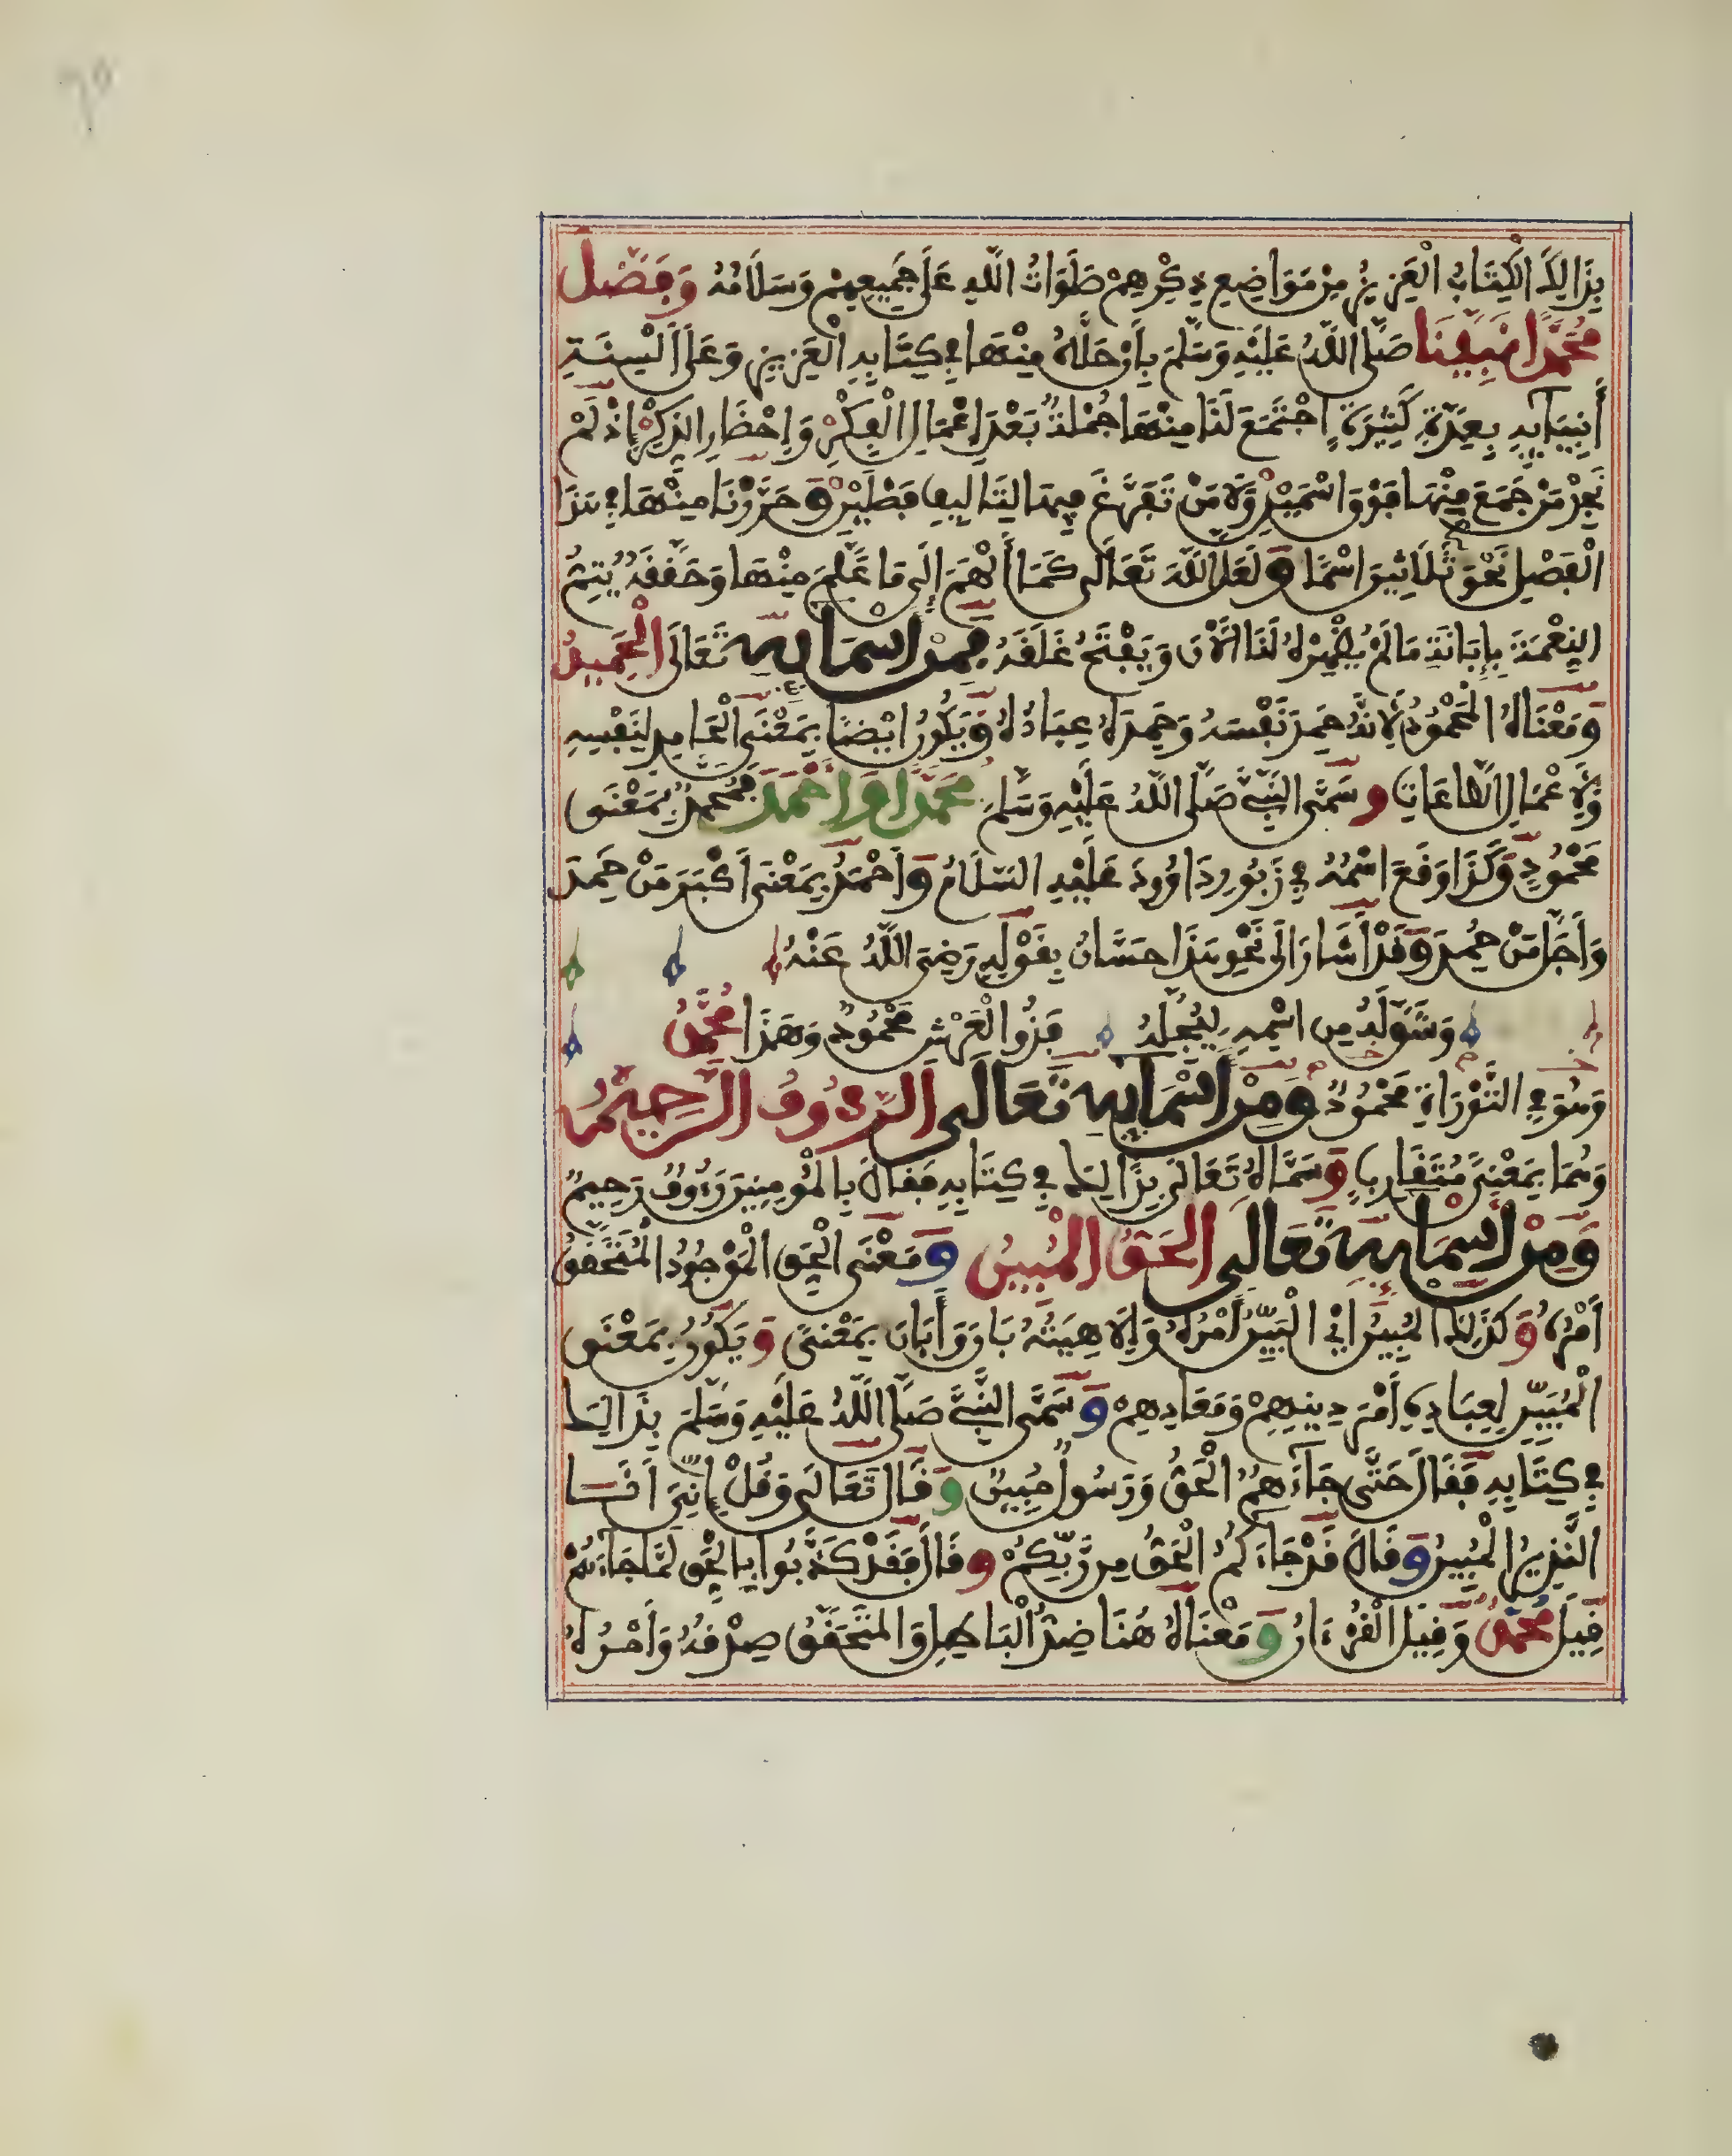 بِذَالِكَ الْكِتَابُ الْعَزِيزُ مِنْ مَوَاضِعِ ذِكْرِهِمْ صَلَوَاتُ اللَّهِ عَلَى جَمِيعِهِمْ وَسَلَامُهُ وَفَضَّلَ
مُحَمَّدًا نَبِيَّنَا صَلَّى اللَّهُ عَلَيْهِ وَسَلَّمَ بِأَنْ حَلَّاهُ مِنْهَا فِي كِتَابِهِ الْعَزِيزِ وَعَلَى أَلْسِنَةِ
أَنْبِيَائِهِ بِعِدَّةٍ كَثِيرَةٍ اجْتَمَعَ لَنَا مِنْهَا جُمْلَةٌ بَعْدَ إِعْمَالِ الْفِكْرِ وَإِحْضَارِ الذِّكْرِ إِذْ لَمْ
نَجِدْ مَنْ جَمَعَ مِنْهَا فَوْقَ اسْمَيْنِ وَلَا مَنْ تَفَرَّغَ فِيهَا لِتَالِيفِ فَصْلَيْنِ وَحَرَّرْنَا مِنْهَا فِي هَذَا
الْفَصْلِ نَحْوَ ثَلَاثِينَ اسْمًا وَلَعَلَّ اللَّهَ تَعَالَى كَمَا أَلْهَمَ إِلَى مَا عَلَّمَ مِنْهَا وَحَقَّقَهُ يُتِمُّ
النِّعْمَةَ بِإِبَانَةِ مَا لَمْ يُظْهِرْهُ لَنَا الْآنَ وَيَفْتَحُ غَلَقَهُ فَمِنْ أَسْمَائِهِ تَعَالَى الْحَمِيدُ
وَمَعْنَاهُ الْمَحْمُودُ لِأَنَّهُ حَمِدَ نَفْسَهُ وَحَمِدَهُ عِبَادُهُ وَيَكُونُ أَيْضًا بِمَعْنَى الْحَامِدِ لِنَفْسِهِ
وَلِأَعْمَالِ الطَّاعَاتِ وَسَمَّى النَّبِيَّ صَلَّى اللَّهُ عَلَيْهِ وَسَلَّمَ مُحَمَّدًا وَأَحْمَدَ فَمُحَمَّدٌ بِمَعْنَى
مَحْمُودٍ وَكَذَا وَقَعَ اسْمُهُ فِي زَبُورِ دَاوُودَ عَلَيْهِ السَّلَامُ وَأَحْمَدُ بِمَعْنَى أَكْبَرَ مَنْ حَمِدَ
وَأَجَلَّ مَنْ حُمِدَ وَقَدْ أَشَارَ إِلَى نَحْوِ هَذَا حَسَّانُ بِقَوْلِهِ رَضِيَ اللَّهُ عَنْهُ
وَشَقَّ لَهُ مِنِ اسْمِهِ لِيُجِلَّهُ فَذُو الْعَرْشِ مَحْمُودٌ وَهَذَا مُحَمَّدُ
وَهُوَ فِي التَّوْرَاةِ مَحْمُودٌ وَمِنْ أَسْمَائِهِ تَعَالَى الرَّءُوفُ الرَّحِيمُ
وَهُمَا بِمَعْنًى مُتَقَارِبٍ وَسَمَّاهُ تَعَالَى بِذَالِكَ فِي كِتَابِهِ فَقَالَ بِالْمُومِنِينَ رَءُوفٌ رَحِيمٌ
وَمِنْ أَسْمَائِهِ تَعَالَى الْحَقُّ الْمُبِينُ وَمَعْنَى الْحَقِّ الْمَوْجُودُ الْمُتَحَقَّقُ
أَمْرُهُ وَكَذَلِكَ الْمُبِينُ أَيِ الْبَيِّنُ أَمْرُهُ وَإِلَاهِيَتُهُ بَانَ وَأَبَانَ بِمَعْنًى وَيَكُونُ بِمَعْنَى
الْمُبَيِّنِ لِعِبَادِهِ أَمْرَ دِينِهِمْ وَمَعَادِهِمْ وَسَمَّى النَّبِيَّ صَلَّى اللَّهُ عَلَيْهِ وَسَلَّمَ بِذَالِكَ
فِي كِتَابِهِ فَقَالَ حَتَّى جَاءَهُمُ الْحَقُّ وَرَسُولٌ مُبِينٌ وَقَالَ تَعَالَى وَقُلْ إِنِّيَ أَنَا
النَّذِيرُ الْمُبِينُ وَقَالَ قَدْ جَاءَكُمُ الْحَقُّ مِن رَّبِّكُمْ وَقَالَ فَقَدْ كَذَّبُوا بِالْحَقِّ لَمَّا جَاءَهُمْ
قِيلَ مُحَمَّدٌ وَقِيلَ الْقُرْءَانُ وَمَعْنَاهُ هُنَا ضِدُّ الْبَاطِلِ وَالْمُتَحَقَّقُ صِدْقُهُ وَأَمْرُهُ